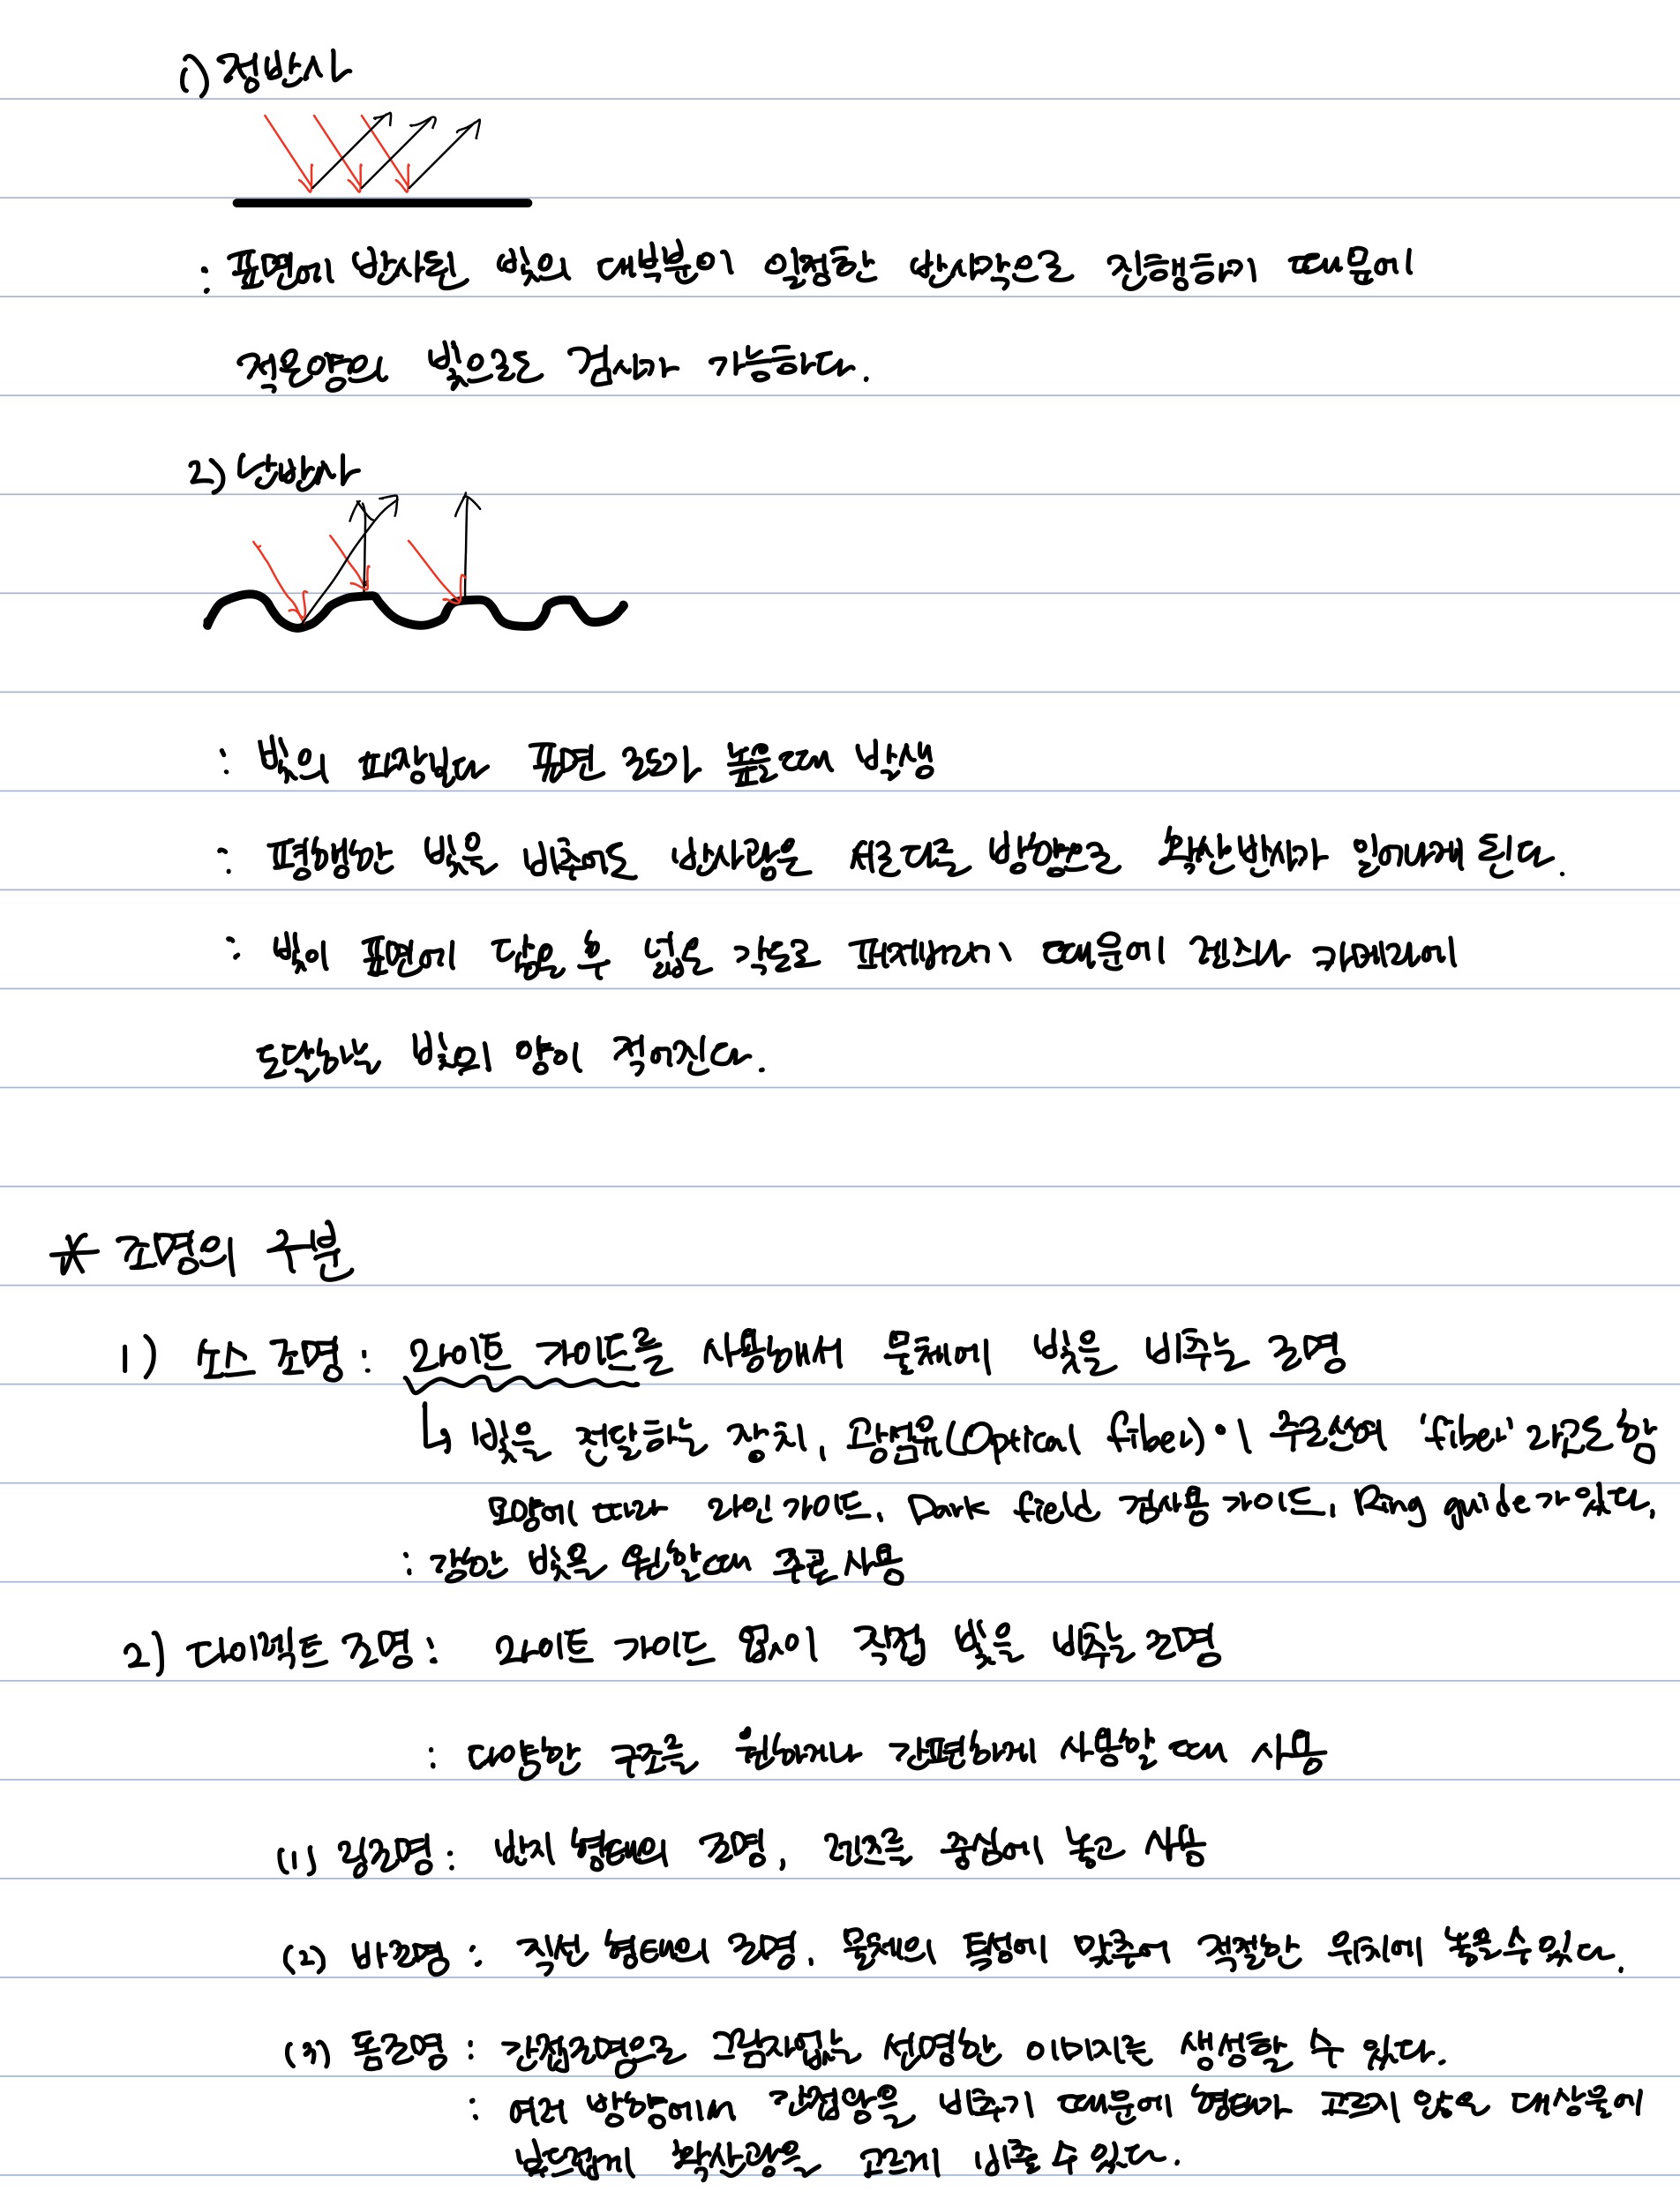 1) 정반사
: 표면에 반사된 빛의 대부분이 일정한 반사각으로 진행하기 때문에
적은양의 빛으로도 검사가 가능하다.
2) 난반사
: 빛의 파장보다 표면 조도가 높을때 발생
: 평행한 빛을 비추어도 반사광은 서로다른 방향으로 확산반사가 일어나게 된다.
: 빛이 표면에 닿은 후 넓은 각도로 퍼져버리기 때문에 렌즈나 카메라에
도달하는 빛의 양이 적어진다.
* 조명의 구분
1) 소스 조명 : 라이트 가이드를 사용해서 물체에 빛을 비추는 조명
↳ 빛을 전달하는 장치, 광섬유(Optical fiber)이 주로쓰여 'fiber' 라고도 함
모양에 따라 라인가이드, Dark field 검사용 가이드, Ring guide가 있다.
: 강한 빛을 원할때 주로 사용
2) 다이렉트 조명 : 라이트 가이드 없이 직접 빛을 비추는 조명
: 다양한 구조를 원하거나 간편하게 사용할 때 사용
(1) 링조명 : 반지 형태의 조명, 렌즈를 중심에 놓고 사용
(2) 바조명 : 직선 형태의 조명, 물체의 특성에 맞추어 적절한 위치에 놓을수 있다.
(3) 돔조명 : 간접조명으로 그림자없는 선명한 이미지를 생성할 수 있다.
: 여러 방향에서 간접광을 비추기 때문에 형태가 고르지 않은 대상물에
부드럽게 확산광을 고르게 비출 수 있다.